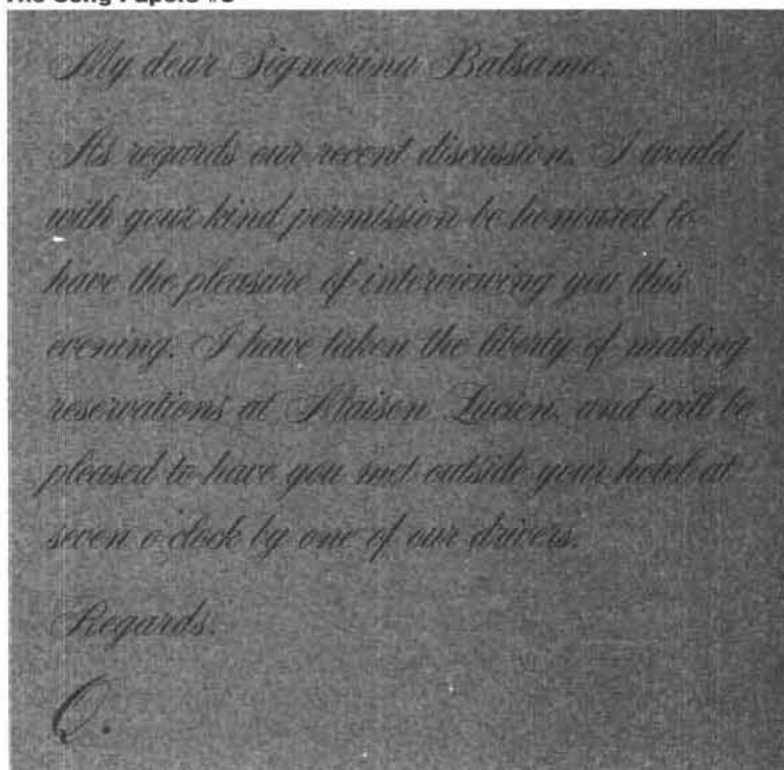 The Song Papers #
My dear Signorina Balsamo:
As regards our recent discussion, I would
with your kind permission be honoured to
have the pleasure of interviewing you this
evening. I have taken the liberty of making
reservations at Maison Lucien, and will be
pleased to have you met outside your hotel at
seven o'clock by one of our drivers.
Regards,
Q.